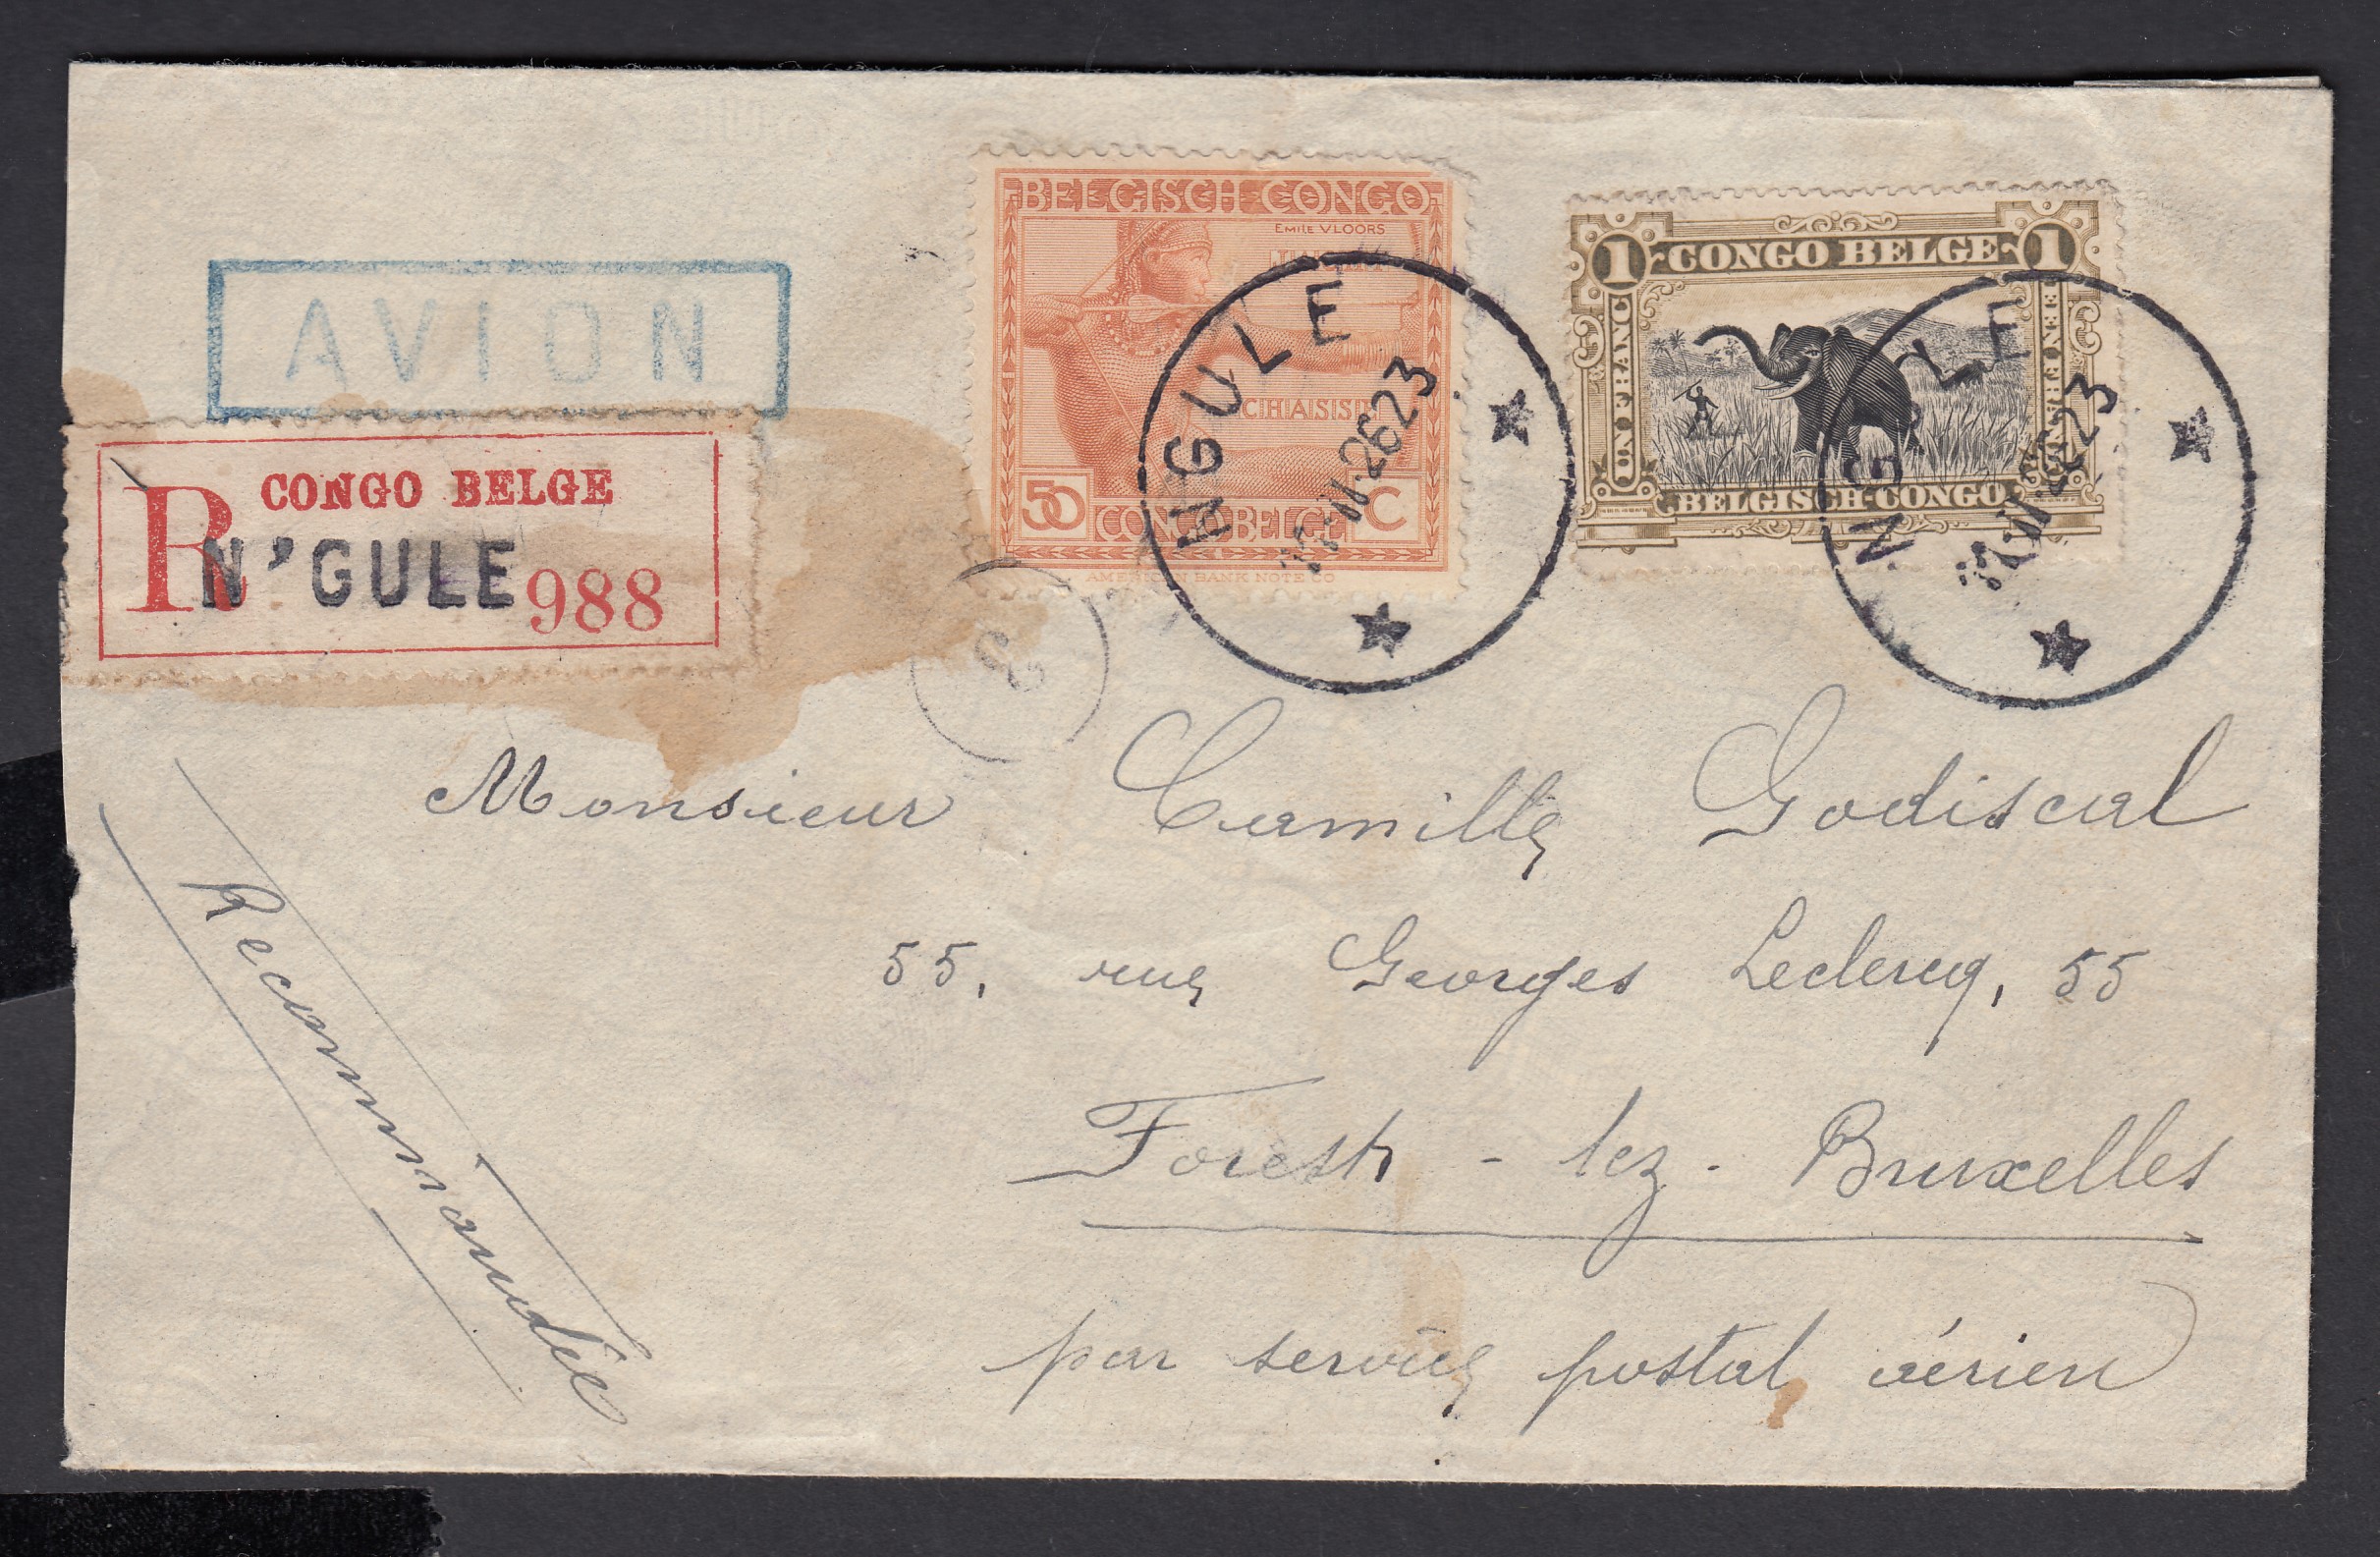 AVION
R CONGO BELGE
N'GULE 988
BELGISCH-CONGO
EMILE VLOORS
50 CONGO BELGE C
AMERICAN BANK NOTE CO
NGULE
1 CONGO BELGE 1
UN FRANC
BELGISCH-CONGO
Monsieur Camille Godiscal
55, rue Georges Leclercq, 55
Forest - lez - Bruxelles
par service postal aérien
Recommandée